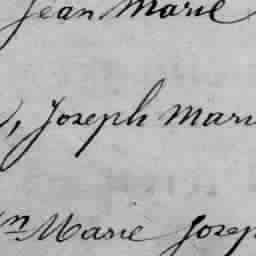 Jean Marie
, Joseph Mari
n Marie Josep